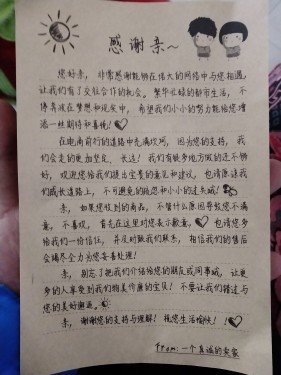 感谢亲~
您好亲，非常感谢能够在偌大的网络中与您相遇，
让我们有了交往合作的机会。繁华忙碌的都市生活，不
停奔波在梦想和现实中，希望我们小小的努力能给您增
添一丝期待和喜悦！
在电商前行的道路中充满坎坷，因为您的支持，我
们会走的更加坚定、长远！我们有较多地方做的还不够
好，欢迎您给我们提出宝贵的意见和建议，也请原谅我
们成长道路上，不可避免的给您和小小的过失哦！
亲，如果您收到的商品，不管什么原因导致您不满
意、不喜欢，首先在这里对您表示歉意，也请您多
给我们一份信任，并及时跟我们联系，相信我们的售后
会竭尽全力为您妥善处理！
亲，别忘了把我们介绍给您的朋友或同事哦，让更
多的人享受到我们物美价廉的宝贝！不要让我们错过与
您的美好邂逅。
亲，谢谢您的支持与理解！祝您生活愉快！！
From：一个真诚的卖家